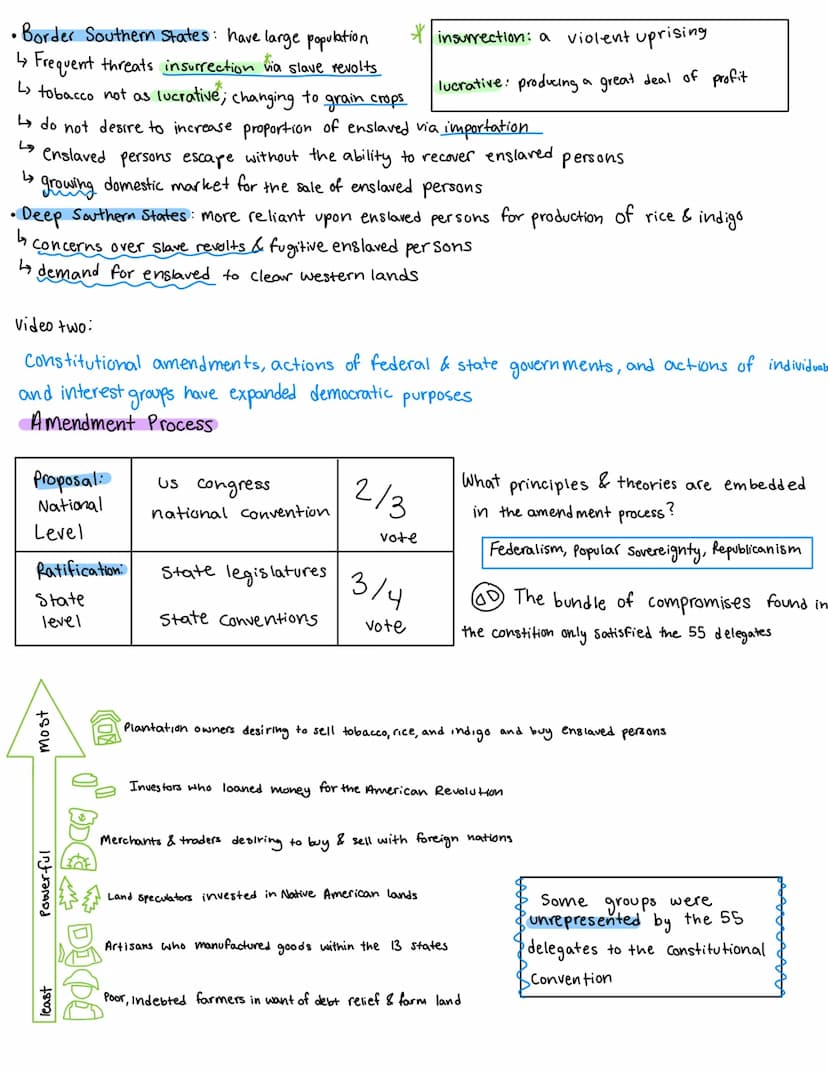 • Border Southern States: have large population
↳ Frequent threats insurrection* via slave revolts
↳ tobacco not as lucrative*; changing to grain crops
* insurrection: a violent uprising
lucrative: producing a great deal of profit
↳ do not desire to increase proportion of enslaved via importation
↳ enslaved persons escape without the ability to recover enslaved persons
↳ growing domestic market for the sale of enslaved persons
• Deep Southern States: more reliant upon enslaved persons for production of rice & indigo
↳ concerns over slave revolts & fugitive enslaved persons
↳ demand for enslaved to clear western lands
Video two:
Constitutional amendments, actions of federal & state governments, and actions of individuals
and interest groups have expanded democratic purposes
Amendment Process
Proposal:
National
Level
US Congress
national convention
2/3
vote
Ratification:
State
level
State legislatures
State conventions
3/4
vote
What principles & theories are embedded
in the amendment process?
Federalism, Popular Sovereignty, Republicanism
The bundle of compromises found in
the constition only satisfied the 55 delegates
most
powerful
least
Plantation owners desiring to sell tobacco, rice, and indigo and buy enslaved persons
Investors who loaned money for the American Revolution
Merchants & traders desiring to buy & sell with foreign nations
Land speculators invested in Native American lands
Artisans who manufactured goods within the 13 states
Poor, Indebted farmers in want of debt relief & farm land
Some groups were
unrepresented by the 55
delegates to the Constitutional
Convention